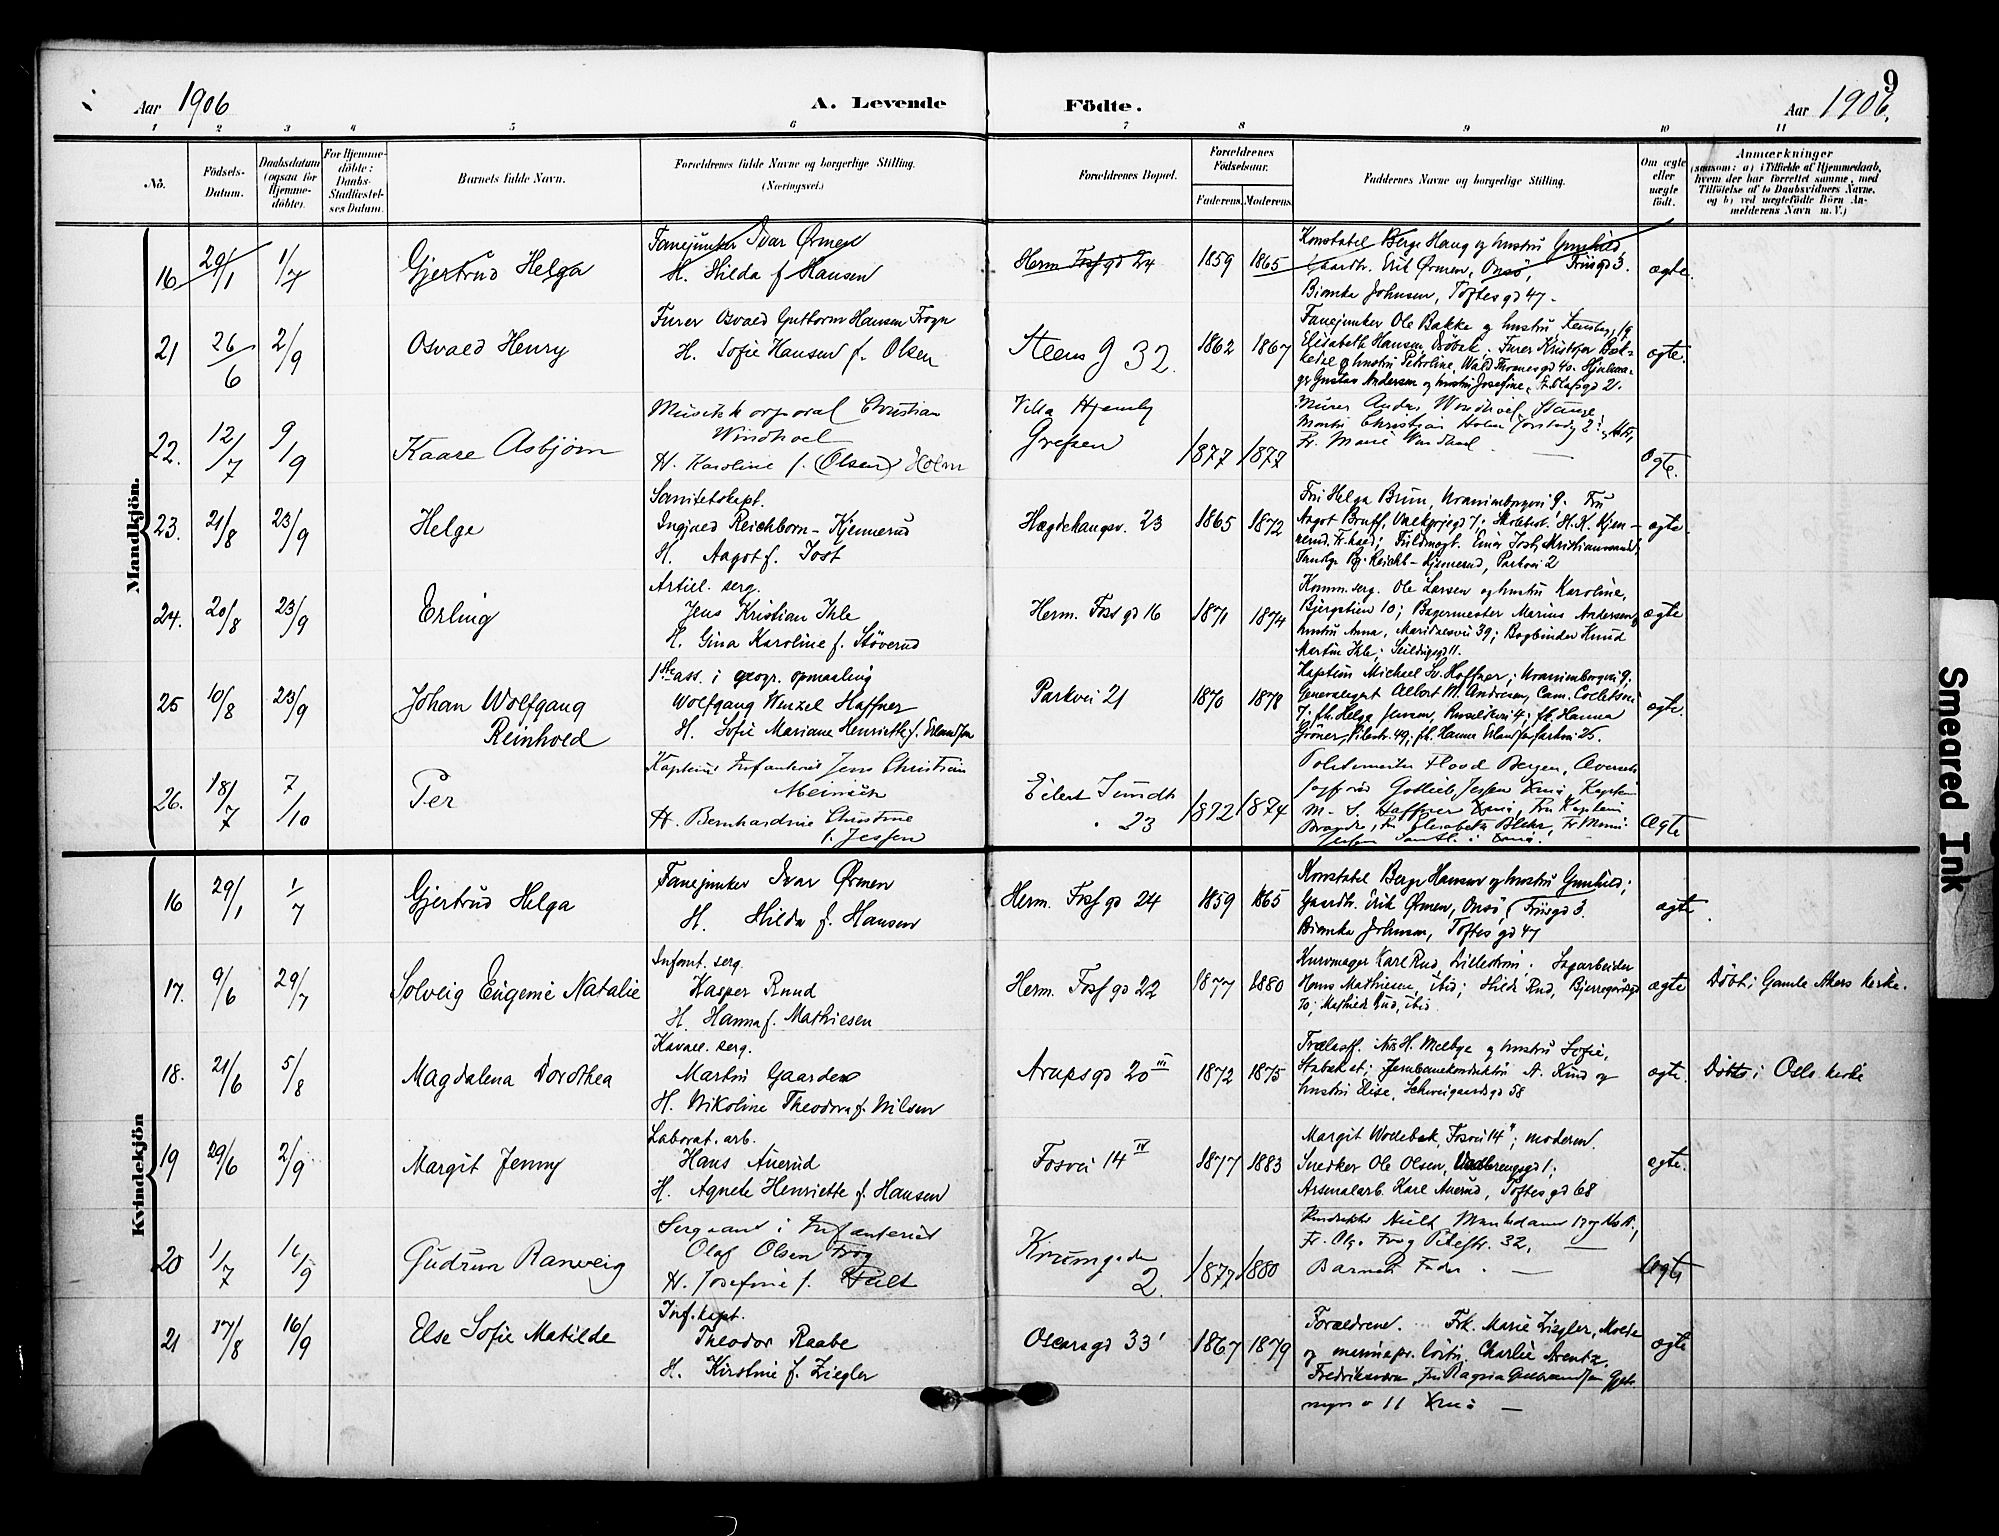 9
Aar 1906 A. Levende Födte. Aar 1906.
1 2 3 4 5 6 7 8 9 10 11
No.
Födsels-
Datum.
Daabsdatum
(ogsaa for
Hjemme-
döbte).
For Hjemme-
döbte:
Daabs-
Stadfæstel-
ses Datum.
Barnets fulde Navn.
Forældrenes fulde Navne og borgerlige Stilling.
(Næringsvei.)
Forældrenes Bopæl.
Forældrenes
Födselsaar.
Faderens. Moderens.
Faddernes Navne og borgerlige Stilling.
Om ægte
eller
uægte
født.
Anmærkninger
(saasom: a) i Tilfælde af Hjemmedaab,
hvem der har forrettet samme, med
Tilföielse af to Daabsvidners Navne,
og b) ved uægtefödte Börn An-
melderens Navn m. V.)
Mandkjön.
16 29/1 1/7 Gjertrud Helga
Fanejunker Ivar Ørmen
H. Hilda f. Hansen
Herm. Fossgd 24 1859 1865
Konstabel Berge Haug og hustru Gunhild,
Gaardbr. Erik Ørmen, Onsö, Friisgd 3.
Bianka Johnsen, Toftesgd 47.
ægte.
21 26/6 2/9 Osvald Henry
Furer Osvald Guttorm Hansen Frogn
H. Sofie Hansen f. Olsen
Steens g 32. 1862 1867
Fanejunker Ole Bakke og hustru
Elisabeth Hansen Furer Kristofer
og hustru Petroline,
Gustav Andersen og hustru Josefine, St. Olafsgd 21.
ægte.
22. 12/7 9/9 Kaare Asbjörn
Musikkorporal Christian
Windhoel
H. Karoline f. (Olsen) Holm
Villa
Grefsen 1877 1877
Murer Anders Windhoel, Stange;
Martin Christian Holm
Fr. Marie Windhoel
Ægte.
23. 21/8 23/9 Helge
Sanitetskapt.
Ingjald Reichborn-Kjennerud
H. Aagot f. Jost
Hægdehaugsv. 23 1865 1872
Fru Helga Brun, Uranienborgvei 9; Fru
Aagot H. K. Kjen-
nerud, Fuldmægt. Einar Jost, Kristianssand;
Reichb-Kjennerud, Parkvei 2
ægte.
24. 20/8 23/9 Erling
Artill. serg.
Jens Kristian Ihle
H. Gina Karoline f. Stöverud
Herm. Foss gd 16 1871 1874
Komm.serg. Ole Larsen og hustru Karoline,
Bjergstien 10; Bagermester Marius Andersen og
hustru Anna, Maridalsvei 39; Bogbinder Knud
Martin Ihle, Seildugsgd 11.
ægte
25 10/8 23/9 Johan Wolfgang
Reinhold
1ste ass. i geogr. opmaaling
Wolfgang Wenzel Haffner
H. Sofie Mariane Henriette f. Erlandsen
Parkvei 21 1870 1878
Kaptein Michael Sv. Haffner, Uranienborgvei 9;
Generalagent Albert M. Andresen, Cam. Collettsvei
7; frk. Helga Jensen, frk. Hanna
Gröner, Pilestr. 49; frk. Hanna Erlandsen Parkvei 25.
ægte.
26. 18/7 7/10 Per
Kaptein i Infanteriet Jens Christian
Meinich
H. Bernhardine Christine
f. Jessen
Eilert Sundts
23 1872 1874
Politimester Flood Bergen,
Gottlieb Jessen Kria, Kaptein
M. S. Haffner Kria, Fru Kaptein
Fr. Elisabeth Blehr,
Jessen samtl. i Kria.
Ægte
Kvindekjön
16 29/1 1/7 Gjertrud Helga
Fanejunker Ivar Ørmen
H. Hilda f. Hansen
Herm. Foss gd 24 1859 1865
Konstabel Berge Hansen og hustru Gunhild;
Gaardbr. Erik Ørmen, Onsö, (Friisgd 3.
Bianka Johnsen, Toftes gd 47
ægte.
17. 9/6 29/7 Solveig Eugenie Natalie
Infant. serg.
Kasper Ruud
H. Hanna f. Mathiesen
Herm. Foss gd 22 1877 1880
Kurvmager Karl Rud, Lilleström. Sagarbeider
Hans Mathiesen, ibid; Hilda Rud, Bjerregårdsgd
70; Mathilde Rud, ibid.
ægte Döbt i Gamle Akers kirke.
18. 21/6 5/8 Magdalena Dorothea
Kavall. serg.
Martin Gaarder
H. Nikoline Theodora f. Nilsen
Arupsgd 20 III 1872 1875
Trælastf. H. Melbye og hustru Sofie,
Stabæk st; Jernbanekonduktör A. Rud og
hustru Elise, Schweigaardsgd 58
ægte. Döbt i Oslo kirke
19 29/6 2/9 Margit Jenny
Laborat. arb.
Hans Auerud
H. Agnete Henriette f. Hansen
Fosvei 14 IV 1877 1883
Margit Wodebak, Fosvei 14"; moderen.
Snedker Ole Olsen, Vaalerengsgd 1;
Arsenalarb. Karl Auerud, Toftes gd 68
ægte.
20 1/7 16/9 Gudrun Ranveig
Sergeant i Infanteriet
Olaf Olsen Frog
H. Josefine f. Hult
Krumgaden
2. 1877 1880
Konduktör Hult
Fr. Olga Frog Pilestr. 32.
Barnets Fader.
Ægte
21 17/8 16/9 Else Sofie Matilde
Inf. kapt.
Theodor Raabe
H. Kirstine f. Ziegler
Oscarsgd 33' 1867 1879
Forældrene. Frk. Marie Ziegler, Molde
og marinepr. löitn. Charlie Arentz,
Fredriksværn, Fru Ragna Gulbrandsen
11 Kria
ægte
Smeared Ink